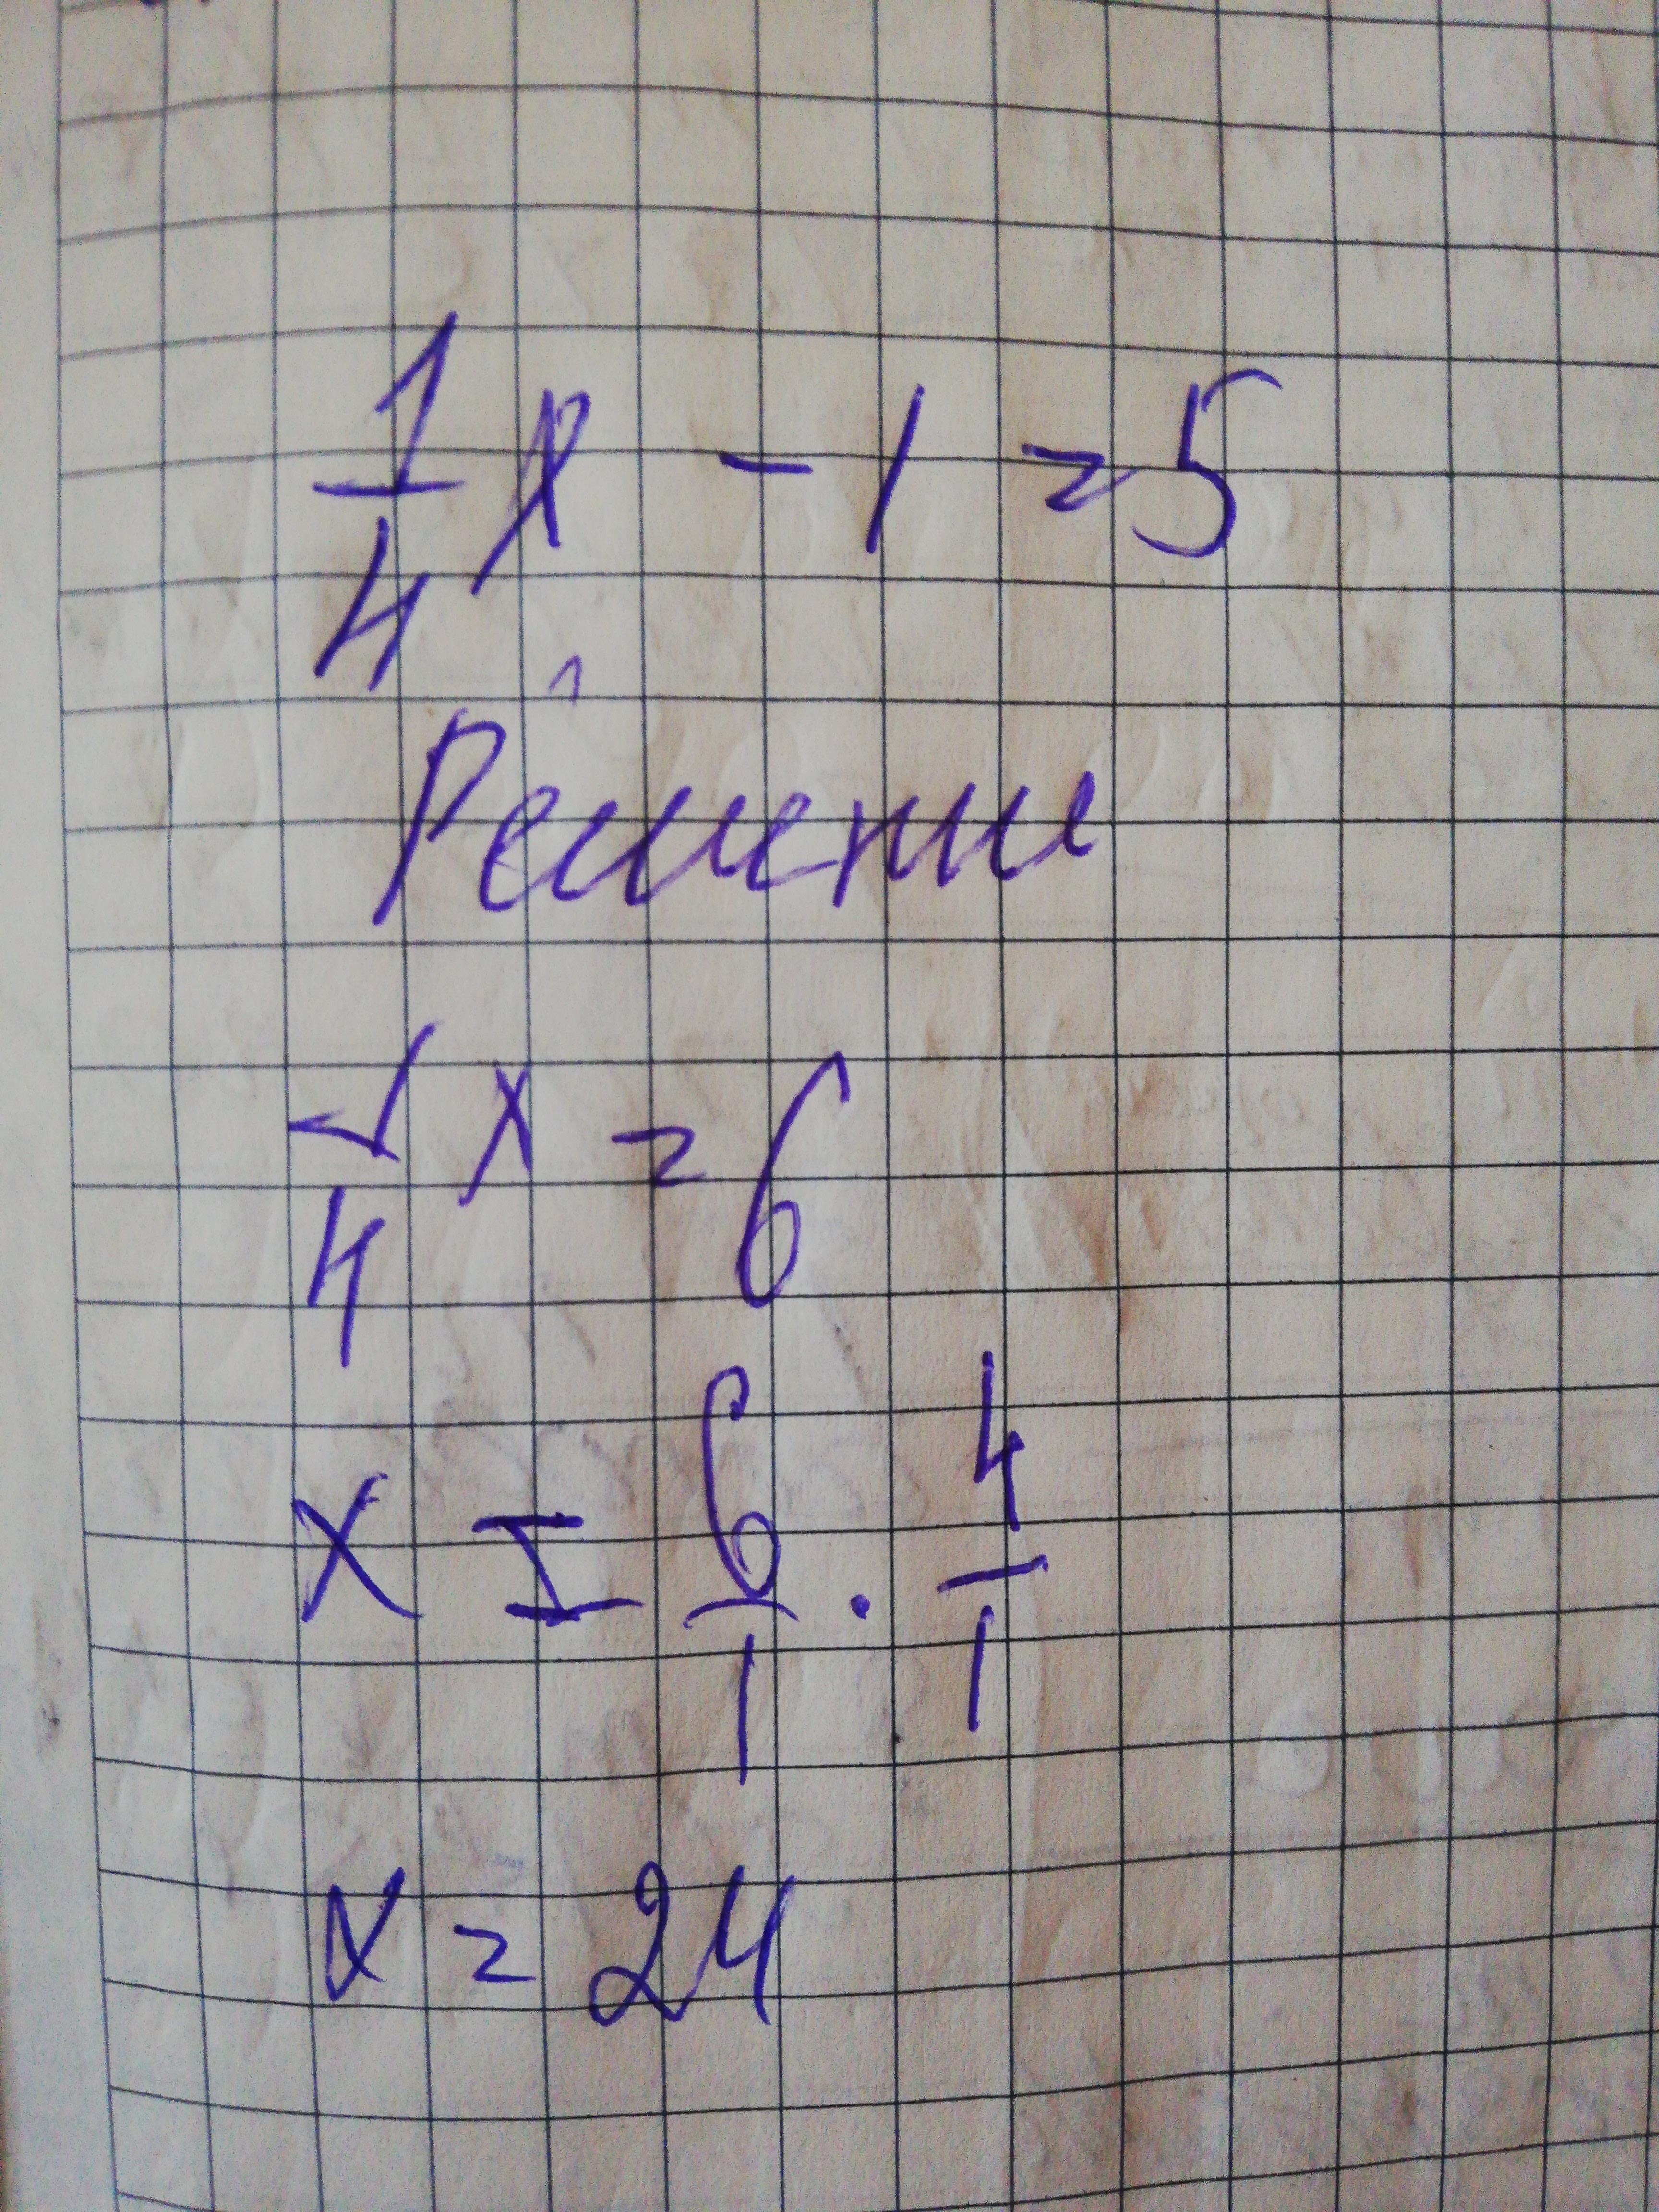 1/4 x - 1 = 5
Решение
1/4 x = 6
x = 6/1 · 4/1
x = 24